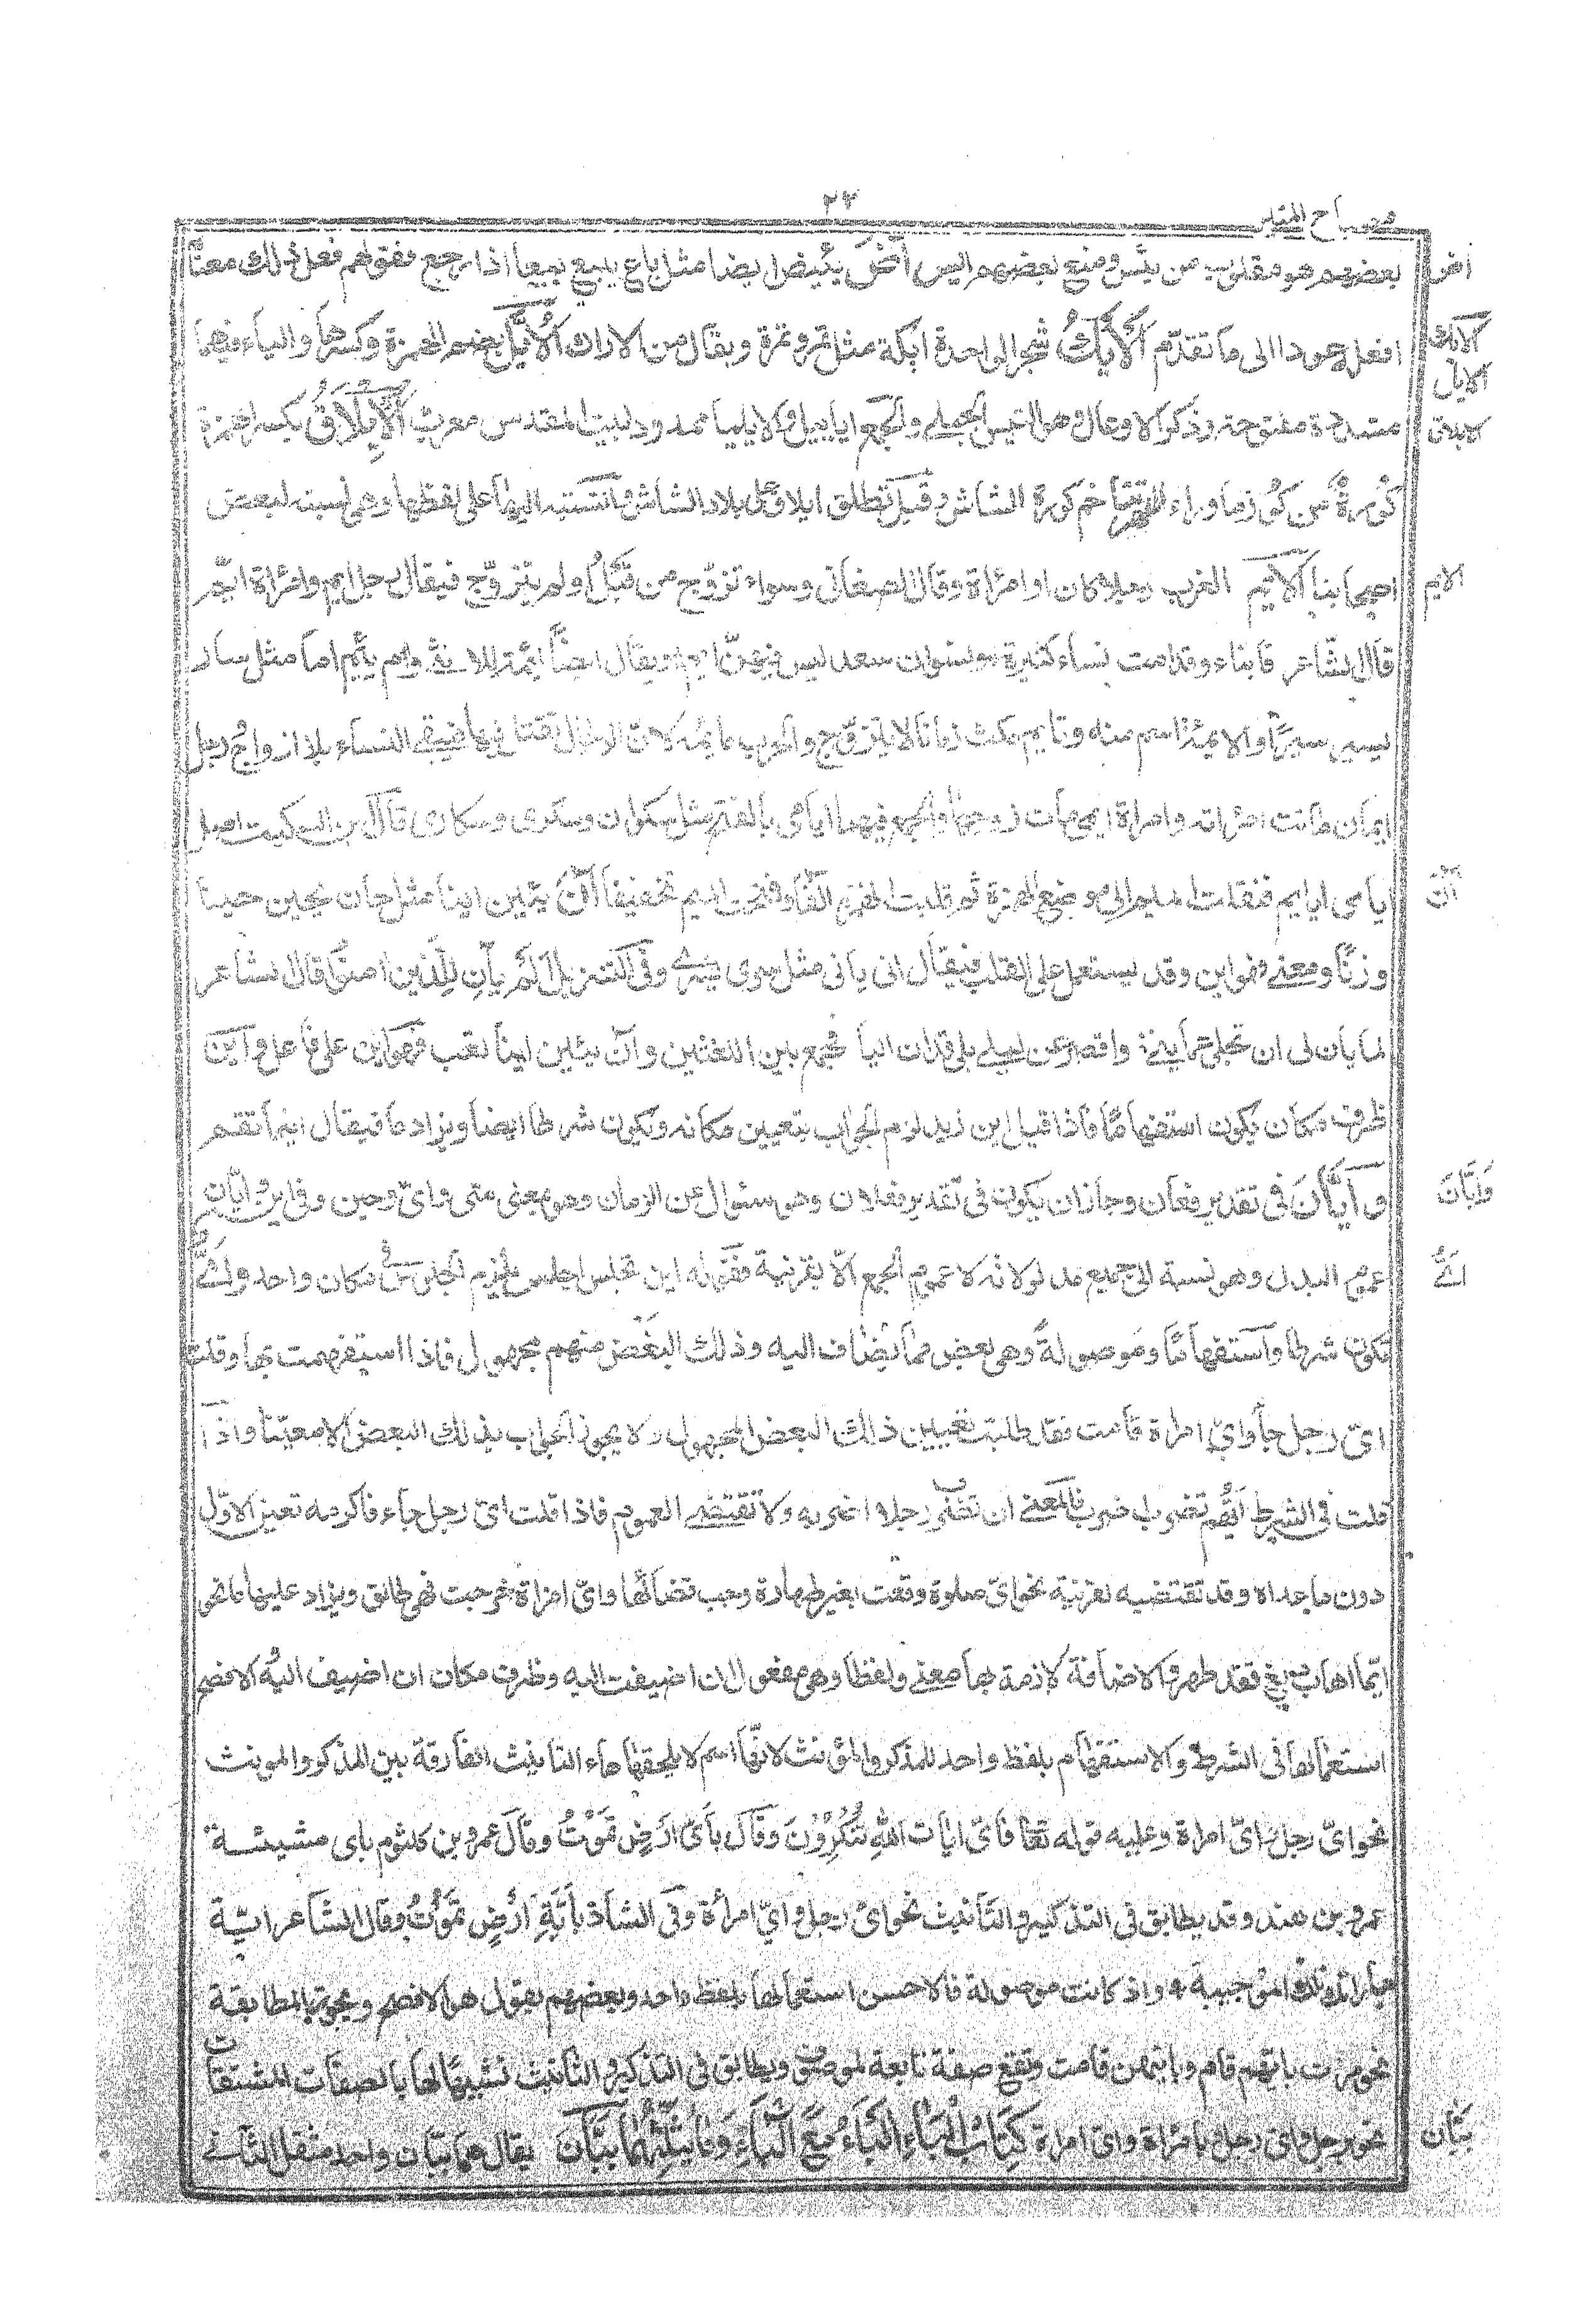 مصباح المنير
٢٢
بعضهم هو مقلوب من يئس ومنع بعضهم اليس آضَ يئيض ايضا مثل باع يبيع بيعا اذا رجع فقولهم فعل ذلك معناه
افعل عودا الى ما تقدّم اَلْاَيْكُ شجر الواحدة ايكة مثل تمر وتمرة ويقال من الاراك اَلْاُيَّلُ بضم الهمزة وكسرها والياء فيهما
مشددة مفتوحة ذكر الاوعال وهو التيس الجبلى والجمع اياييل وايلياء ممدود لبيت المقدس معرب اَلْاِيلَاقُ بكسر الهمزة
كُورةٌ من كور ما وراء النهر تتاخم كورة الشاش وقيل تطلق ايلاق على بلاد الشاش والنسبة اليها على لفظها وهى نسبة لبعض
اصحابنا الايّم العزب رجلا كان او امرأة وقال الصغانى وسواء تزوّج من قَبْلُ او لم يتزوّج فيقال رجل ايم وامرأة ايّم
قال الشاعر فابنا وقد امت نساء كثيرة ونسوان سعد ليس فيهنّ ايم ويقال ايضاً ايّمة للانثى وآم يئيم اما مثل سار
يسير سيرًا والايمة اسم منه وتايم مكث زمانا لا يتزوّج والحرب مايمة لان الرجال تقتل فيها فيبقى النساء بلا ازواج ورجل
ايمان ماتت امرأته وامراة ايمى مات زوجها والجمع فيهما ايامى بالفتح مثل سكران وسكرى وسكارى قال ابن السكيت اصل
ايامى ايايم فنقلت الميم الى موضع الهمزة ثم قلبت الهمزة الفًا وفتحت الميم تخفيفا آنَ يئين اينا مثل حان يحين حينا
وزنًا ومعنى فهو اين وقد يستعمل على القلب فيقال انى يانى مثل سرى يسرى وفى التنزيل اَلَمْ يَاْنِ لِلَّذِين امنوا قال الشاعر
لما يان لى ان تجلى عمايتى واقصر عن ليلى بلى قدان ليا فجمع بين اللغتين وآن يئين اينا تعب فهو اين على فاعل واين
ظرف مكان يكون استفهاما فاذا قيل اين زيد لزم الجواب بتعيين مكانه ويكون شرطا ايضا ويزاد ما فيقال اينما تقم
اقم وَاَيَّانَ فى تقدير فعال وجاز ان يكون فى تقدير فعلان وهو سئوال عن الزمان وهو بمعنى متى واىّ وحين وفى اين وايان
عموم البدل وهو نسبة الى جميع مدلولاته لا عموم الجمع الّا بقرينة فقوله اين تجلس اجلس يلزم الجلوس فى مكان واحد وَاَىٌّ
تكون شرطا واستفهامًا وموصولةً وهى بعض مما يُضاف اليه وذلك البَعْض منهم مجهول فاذا استفهمت بها وقلت
اىّ رجل جاء واىّ امراة قامت فقد طلبت تعيين ذلك البعض المجهول ولا يجوز الجواب بذلك البعض الا معيّنا واذا
قلت فى الشرط اَيُّهم تضرب اضرب فالمعنى ان تضرب رجلا اضربه ولا تقتضى العموم فاذا قلت اىّ رجل جاء فاكرمه تعين الاوّل
دون ما عداه وقد تقتضيه لقرينة نحو اىّ صلوة وقعت بغير طهارة وجب قضائها واىّ امراة خرجت فهى طالق ويزاد عليها ما نحو
ايّما اهاب دبغ فقد طهر والاضافة لازمة لها معنى ولفظا وهى مفعول ان اضيفت اليه وظرف مكان ان اضيف اليه الافصح
استعمالها فى الشرط والاستفهام بلفظ واحد للمذكر والمؤنث لانّها اسم لا يلحقها هاء التانيث الفارقة بين المذكر والمونث
نحو اىّ رجل واىّ امراة وعليه قوله تعا فاىّ ايات اللهِ تُنْكِرُوْنَ وقال بِاَىّ اَرْضٍ تَمُوْتُ وقال عمرو بن كلثوم باى مشيئة
عمرو بن هند وقد يطابق فى التذكير والتانيث نحو اىّ رجل وايّة امرأة وفى الشاذ بِاَيَّةِ اَرْضٍ تَمُوْتُ وقال الشاعر ايّة
جاراتك تلك الموجبية واذ كانت موصولة فالاحسن استعمالها بلفظ واحد وبعضهم يقول هو الافصح ويجوز المطابقة
نحو مررت بايّهم قام وبايتهن قامت وتقع صفة تابعة لموصوف ويطابق فى التذكير والتانيث تشبيهًا لها بالصفات المشتقات
نحو برجل اىّ رجل وبامراة واىّ امراة كِتَابُ الْبَاءِ الْبَاءُ مَعَ الْبَاءِ وَمَا يُثَلِّثُهُمَا بَبَّانَ يقال هم ببّان واحد مثقل الثانى
اض
الايك
الايل
الايلاق
الايم
آن
وَايّان
اىّ
ببّان